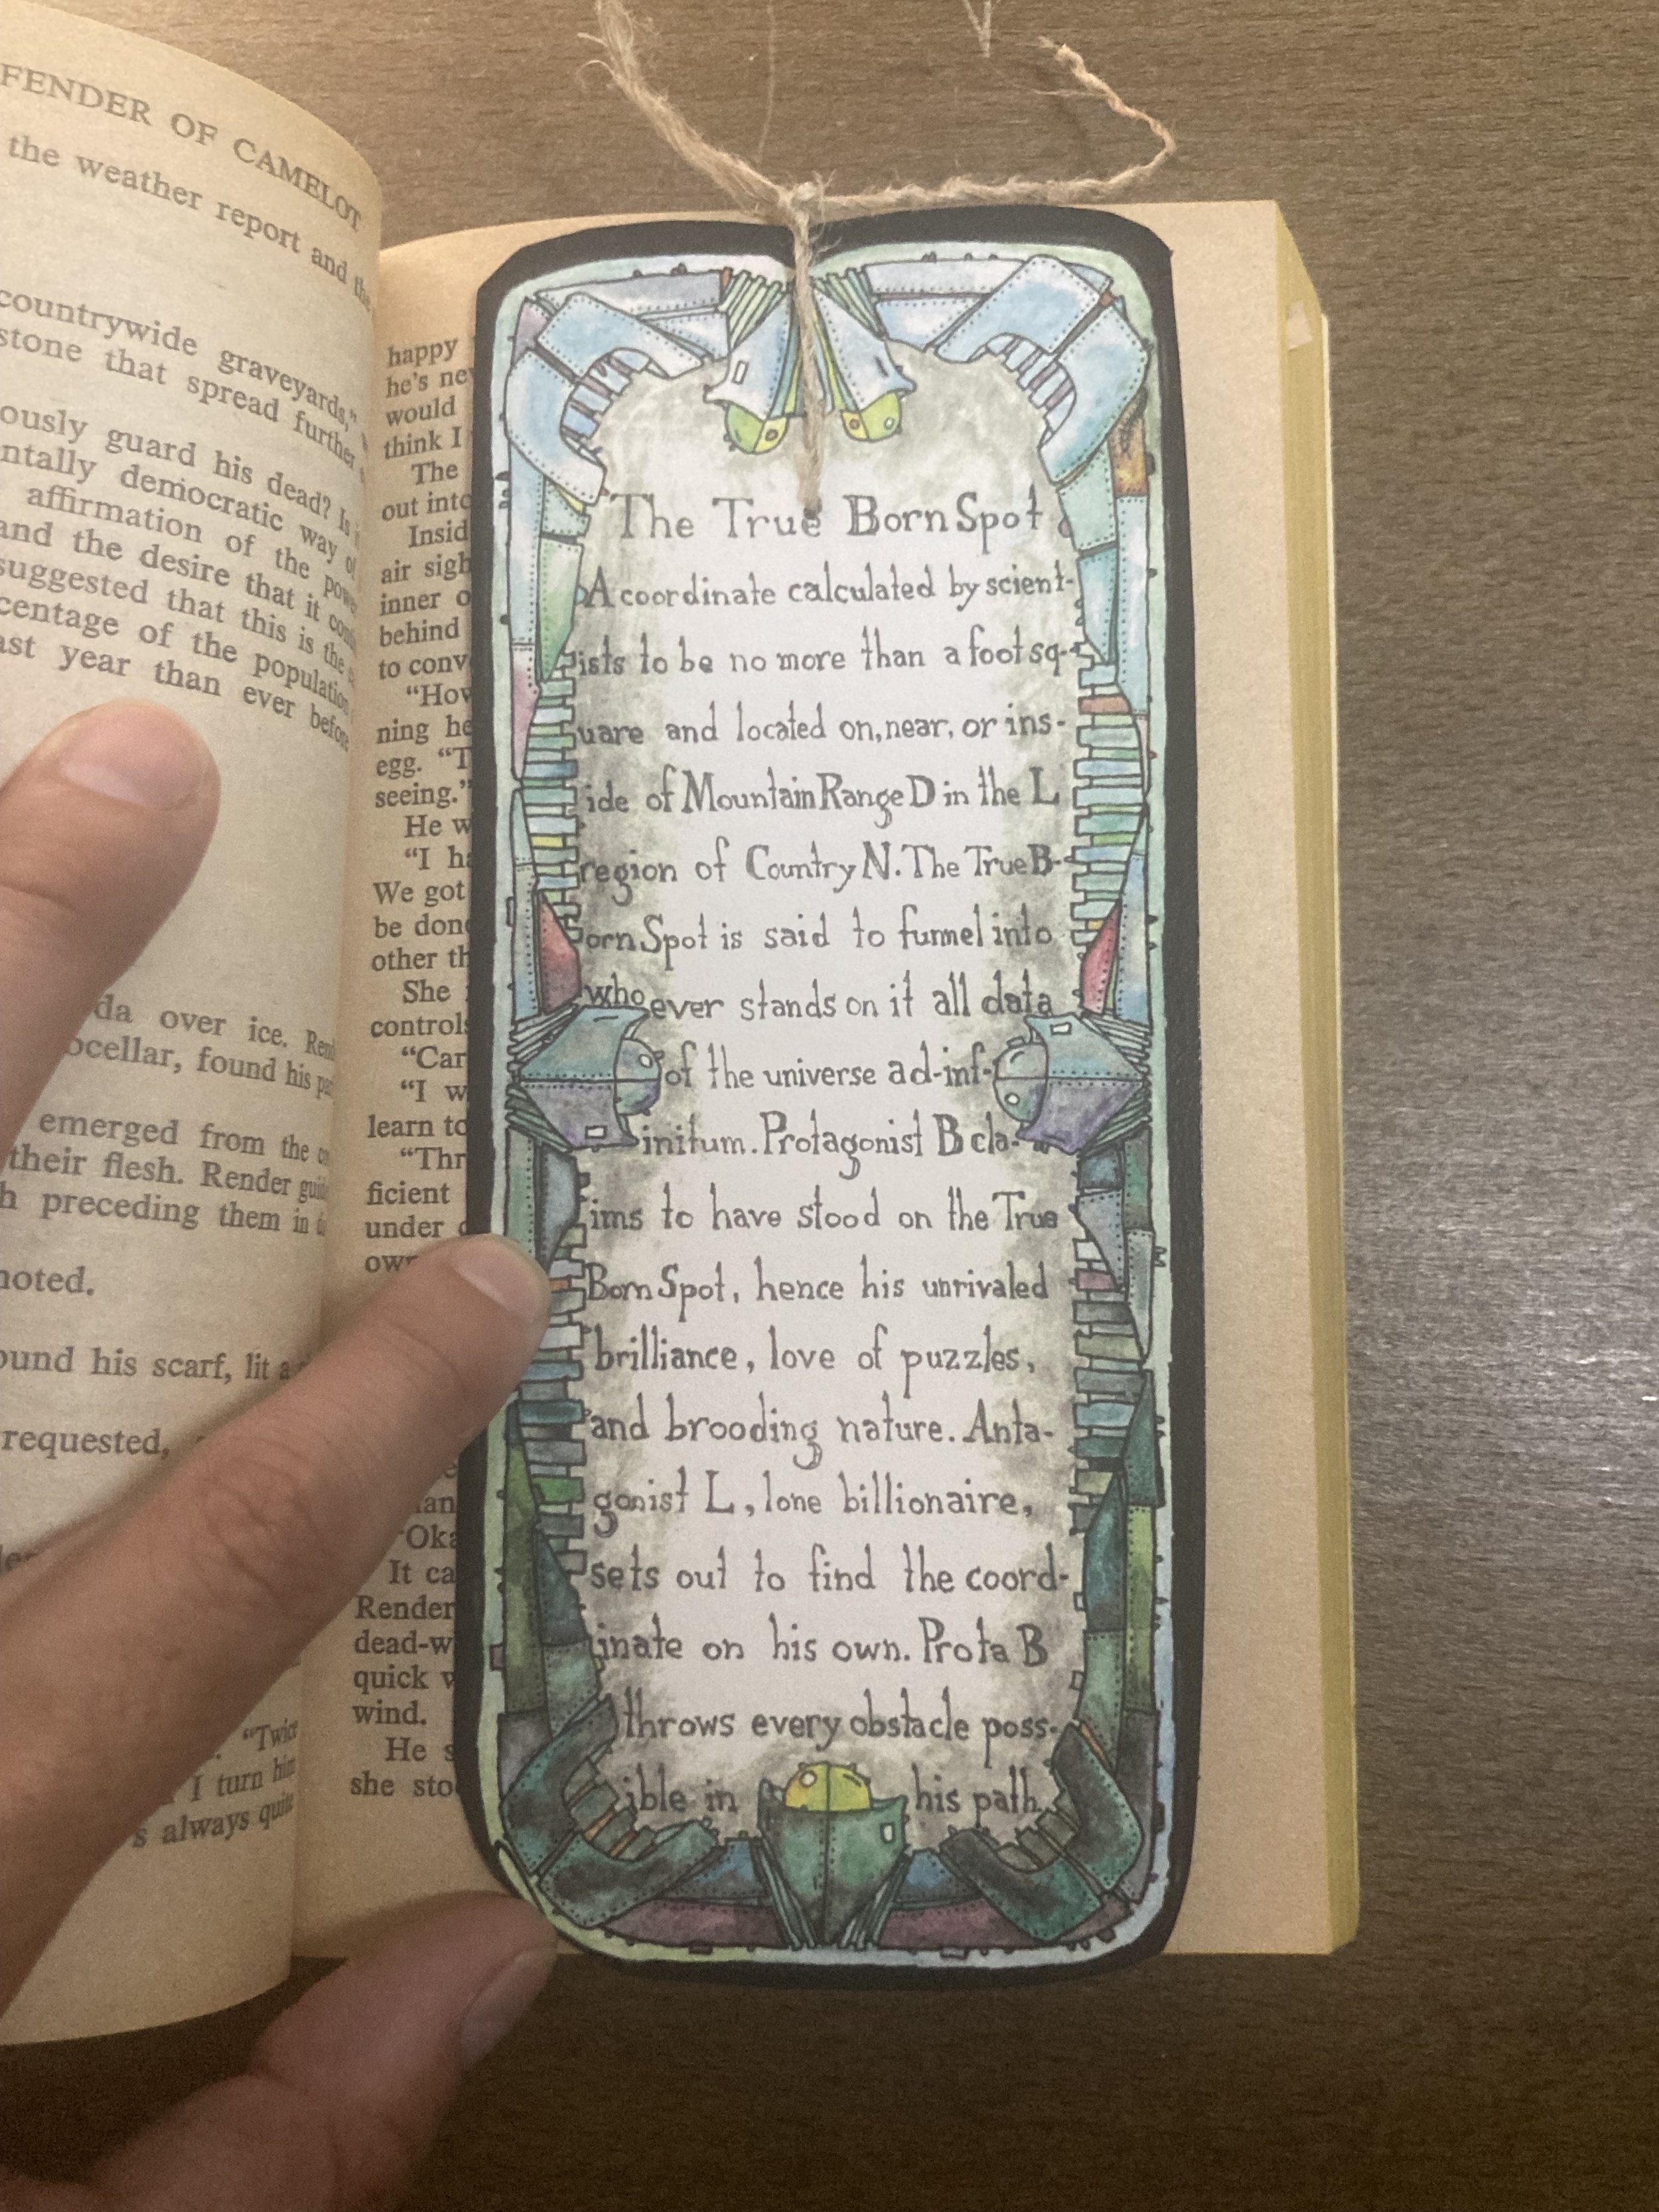 FENDER OF CAMELOT
the weather report and the
countrywide graveyards,"
stone that spread further
ously guard his dead? Is
ntally democratic way of
affirmation of the power
and the desire that it
suggested that this is the
centage of the population
ast year than ever before
da over ice.
ocellar, found his
emerged from the
their flesh. Render
h preceding them in
noted.
ound his scarf, lit a
requested,
"Twice
I turn him
s always quite
happy
he's
would
think I
The
out into
Insid
air sigh
inner
behind
to conv
"How
ning he
egg. "T
seeing."
He w
"I ha
We got
be done
other th
She
controls
"Car
"I w
learn to
"Thr
ficient
under
own
"Oka
It ca
Render
dead-w
quick
wind.
He s
she sto
The True Born Spot
A coordinate calculated by scient-
ists to be no more than a foot sq-
uare and located on, near, or ins-
ide of Mountain Range D in the L
region of Country N. The True B-
orn Spot is said to funnel into
whoever stands on it all data
of the universe ad-inf-
initum. Protagonist B cla-
ims to have stood on the True
Born Spot, hence his unrivaled
brilliance, love of puzzles,
and brooding nature. Anta-
gonist L, lone billionaire,
sets out to find the coord-
inate on his own. Prota B
throws every obstacle poss-
ible in his path.